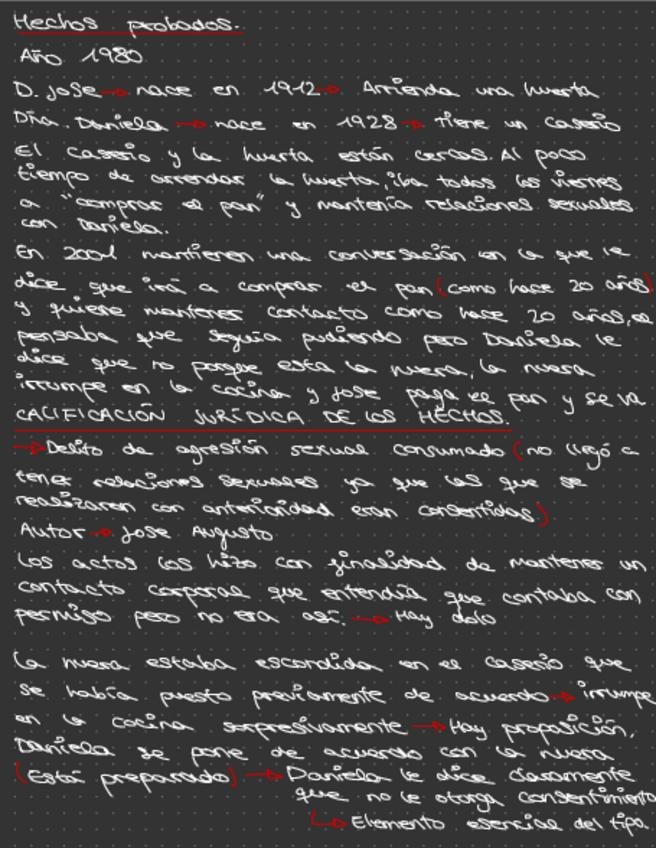 Hechos probados.
Año 1980
D. Jose → nace en 1912 → Arrienda una huerta
Dña. Daniela → nace en 1928 → Tiene un caserio
El caserio y la huerta están cercas. Al poco
tiempo de arrendar la huerta, iba todos los viernes
a "comprar el pan" y mantenia relaciones sexuales
con Daniela.
En 2001 mantienen una conversación en la que le
dice que irá a comprar el pan (como hace 20 años)
y quiere mantener contacto como hace 20 años, el
pensaba que seguia pudiendo pero Daniela le
dice que no porque esta la nuera, la nuera
irrumpe en la cocina y Jose paga el pan y se va
CALIFICACIÓN JURÍDICA DE LOS HECHOS.
→ Delito de agresión sexual consumado (no llegó a
tener relaciones sexuales ya que las que se
realizaron con anterioridad eran consentidas)
Autor → Jose Augusto
Los actos los hizo con finalidad de mantener un
contacto corporal que entendia que contaba con
permiso pero no era asi. → Hay dolo
La nuera estaba escondida en el caserio que
se había puesto previamente de acuerdo → irrumpe
en la cocina sorpresivamente → Hay proposición,
Daniela se pone de acuerdo con la nuera
(Está preparado) → Daniela le dice claramente
que no le otorga consentimiento
↳ Elemento esencial del tipo.